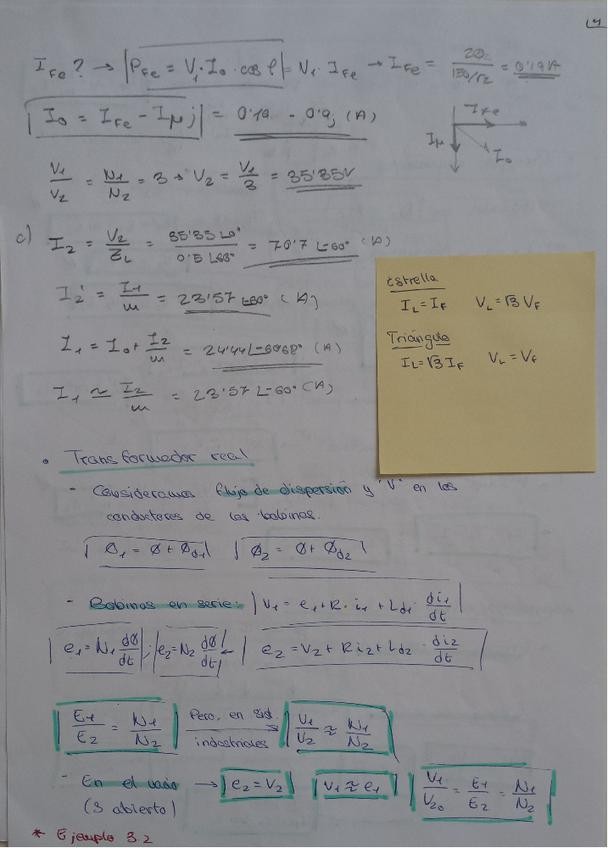 4
I_Fe? → |P_Fe = V₁·I₀·cos φ| = V₁·I_Fe → I_Fe = 20/(150/√2) = 0'19A
|I₀ = I_Fe - I_μ j| = 0'19 - 0'9j (A)
I_Fe
I_μ
I₀
V₁/V₂ = N₁/N₂ = 3 → V₂ = V₁/3 = 35'35V
c) I₂ = V₂/Z_L = 35'35 ∠0°/0'5 ∠60° = 70'7 ∠-60° (A)
I₂' = I₁/m = 23'57 ∠-60° (A)
I₁ = I₀ + I₂/m = 24'44 ∠-60'68° (A)
I₁ ≃ I₂/m = 23'57 ∠-60° (A)
Estrella
I_L = I_F V_L = √3 V_F
Triángulo
I_L = √3 I_F V_L = V_F
• Transformador real
- Consideramos flujo de dispersión y "V" en los
conductores de las bobinas.
|Ø₁ = Ø + Ø_d1| |Ø₂ = Ø + Ø_d2|
- Bobinas en serie: |V₁ = e₁ + R·i₁ + L_d1·di₁/dt|
|e₁ = N₁ dØ/dt|; |e₂ = N₂ dØ/dt| ← |e₂ = V₂ + R i₂ + L_d2·di₂/dt|
|E₁/E₂ = N₁/N₂| Pero, en sist. industriales → |V₁/V₂ ≈ N₁/N₂|
- En el vacío → |e₂ = V₂| |V₁ ≈ e₁| |V₁/V₂₀ = E₁/E₂ = N₁/N₂|
(S abierto)
* Ejemplo 3.2